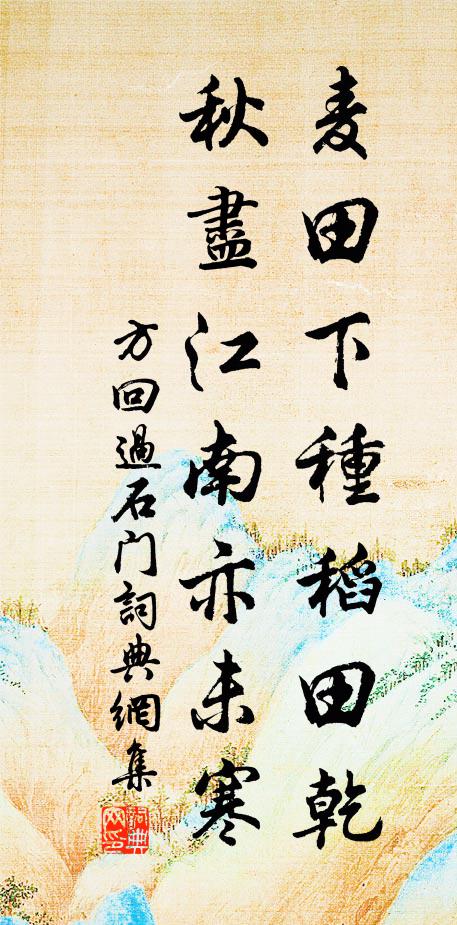 麦田下種稻田乾
秋盡江南亦未寒
方回過石门詞典網集
詞典網印